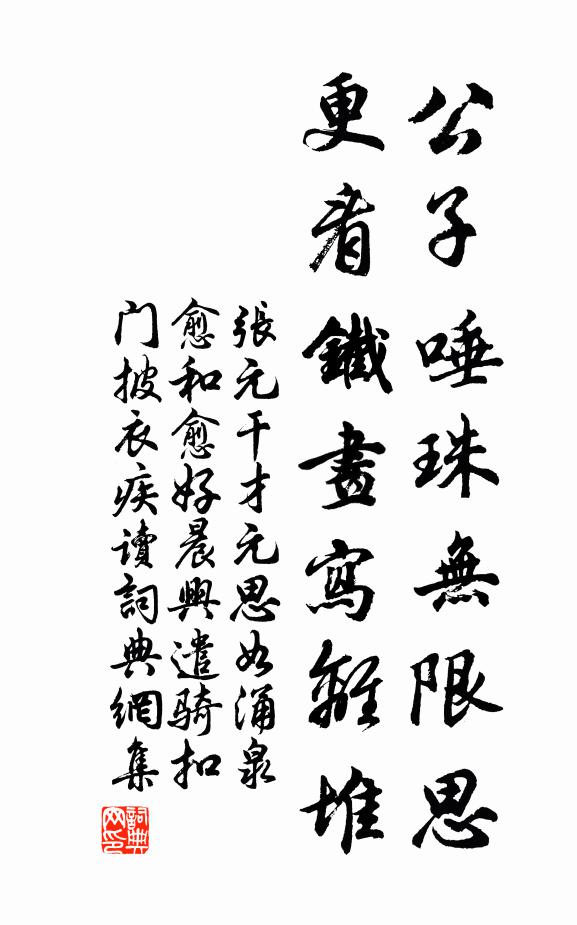 公子唾珠無限思
更看鐵畫寫離堆
張元干才元思如涌泉
愈和愈好晨興遣騎扣
门披衣疾讀詞典網集
詞典
网印